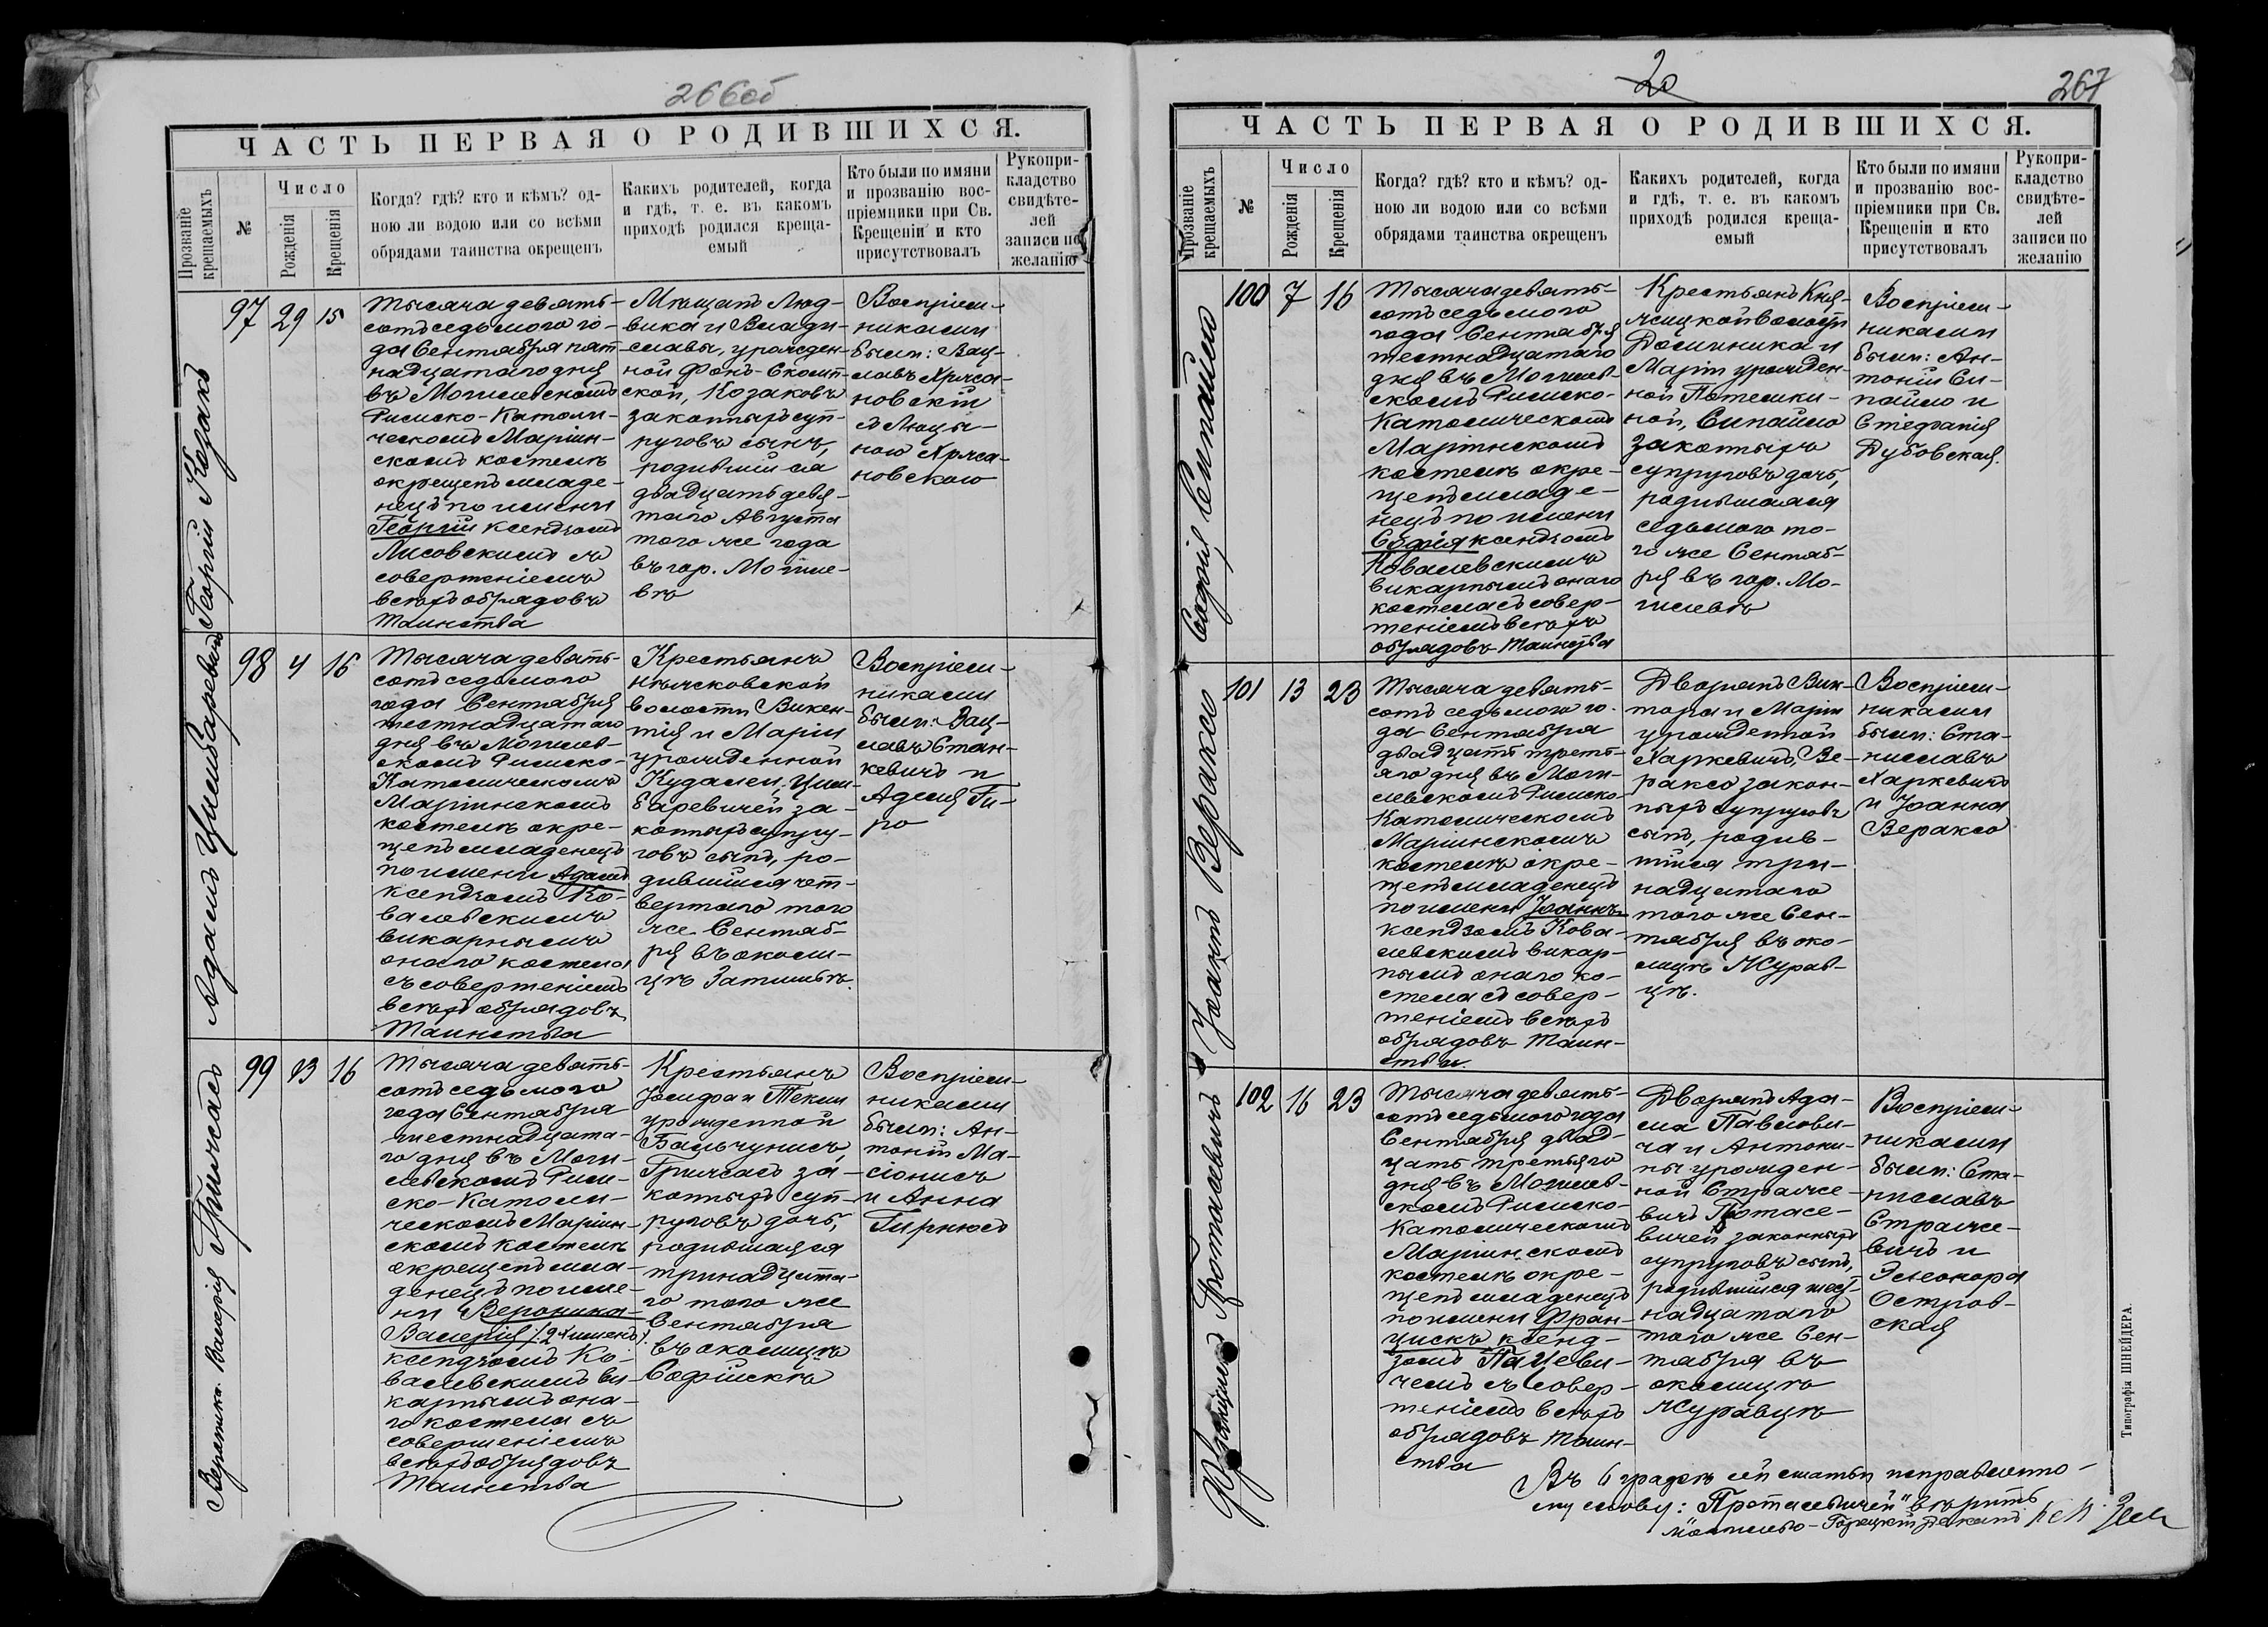 266об
ЧАСТЬ ПЕРВАЯ О РОДИВШИХСЯ.
Прозваніе крещаемыхъ
№
Число
Рожденія
Крещенія
Когда? гдѣ? кто и кѣмъ? од-
ною ли водою или со всѣми
обрядами таинства окрещенъ
Какихъ родителей, когда
и гдѣ, т. е. въ какомъ
приходѣ родился креща-
емый
Кто были по имяни
и прозванію вос-
пріемники при Св.
Крещеніи и кто
присутствовалъ
Рукопри-
кладство
свидѣте-
лей
записи по
желанію
Георгій Козакъ
97
29
15
Тысяча девять-
сотъ седьмого го-
да Сентября пят-
надцатаго дня
въ Могилевскомъ
Римско-Католи-
ческомъ Маріин-
скомъ костелѣ
окрещенъ младе-
нецъ по имени
Георгій ксендзомъ
Лисовскимъ съ
совершеніемъ
всѣхъ обрядовъ
Таинства
Мѣщанъ Люд-
вика и Влади-
славы, урожден-
ной Фонъ-
Козаковъ
законныхъ суп-
руговъ сынъ,
родившійся
двадцать девя-
таго Августа
того же года
въ гор. Могиле-
вѣ
Воспріем-
никами
были: Вац-
лавъ Хрчса-
новскій
съ Люцы-
ною Хрчса-
новскою
Адамъ Цимбаревичъ
98
4
16
Тысяча девять-
сотъ седьмого
года Сентября
шестнадцатаго
дня въ Могилев-
скомъ Римско-
Католическомъ
Маріинскомъ
костелѣ окре-
щенъ младенецъ
по имени Адамъ
ксендзомъ Ко-
валевскимъ
викарнымъ
онаго костела
съ совершеніемъ
всѣхъ обрядовъ
Таинства
Крестьянъ
Нѣжковской
волости Викен-
тія и Маріи
урожденной
Кудалей, Цим-
баревичей за-
конныхъ супру-
говъ сынъ, ро-
дившійся чет-
вертаго того
же Сентяб-
ря въ околи-
цѣ Затишьѣ.
Воспріем-
никами
были: Вац-
лавъ Стан-
кевичъ и
Аделя Ги-
ро
Вероника-Валерія Гричасъ
99
13
16
Тысяча девять-
сотъ седьмого
года Сентября
шестнадцата-
го дня въ Моги-
левскомъ Рим-
ско-Католи-
ческомъ Маріин-
скомъ костелѣ
окрещенъ мла-
денецъ по име-
ни Вероника-
Валерія /2хъ именъ/
ксендзомъ Ко-
валевскимъ ви-
карнымъ она-
го костела съ
совершеніемъ
всѣхъ обрядовъ
Таинства
Крестьянъ
Іосифа и Текли
урожденной
Бальчунисъ,
Гричасъ за-
конныхъ суп-
руговъ дочь,
родившаяся
тринадцата-
го того же
Сентября
въ околицѣ
Софійскѣ
Воспріем-
никами
были: Ан-
тоній Ма-
сіонисъ
и Анна
Гирнюсъ
20
267
ЧАСТЬ ПЕРВАЯ О РОДИВШИХСЯ.
Прозваніе крещаемыхъ
№
Число
Рожденія
Крещенія
Когда? гдѣ? кто и кѣмъ? од-
ною ли водою или со всѣми
обрядами таинства окрещенъ
Какихъ родителей, когда
и гдѣ, т. е. въ какомъ
приходѣ родился креща-
емый
Кто были по имяни
и прозванію вос-
пріемники при Св.
Крещеніи и кто
присутствовалъ
Рукопри-
кладство
свидѣте-
лей
записи по
желанію
Софія Сипайло
100
7
16
Тысяча девять-
сотъ седьмого
года Сентября
шестнадцатаго
дня въ Могилев-
скомъ Римско-
Католическомъ
Маріинскомъ
костелѣ окре-
щенъ младе-
нецъ по имени
Софія ксендзомъ
Ковалевскимъ
викарнымъ онаго
костела съ совер-
шеніемъ всѣхъ
обрядовъ Таинства
Крестьянъ Кня-
жицкой волости
Доминика и
Маріи урожден-
ной Потемки-
ной, Сипайло
законныхъ
супруговъ дочь,
родившаяся
седьмого то-
го же Сентяб-
ря въ гор. Мо-
гилевѣ
Воспріем-
никами
были: Ан-
тоній Си-
пайло и
Стефанія
Дубовская.
Іоаннъ Вераксо
101
13
23
Тысяча девять-
сотъ седьмого го-
да Сентября
двадцать треть-
яго дня въ Моги-
левскомъ Римско-
Католическомъ
Маріинскомъ
костелѣ окре-
щенъ младенецъ
по имени Іоаннъ
ксендзомъ Кова-
левскимъ викар-
нымъ онаго ко-
стела съ совер-
шеніемъ всѣхъ
обрядовъ Таин-
ства.
Дворянъ Вик-
тора и Маріи
урожденной
Харкевичъ, Ве-
раксо закон-
ныхъ супруговъ
сынъ, родив-
шійся три-
надцатаго
того же Сен-
тября въ око-
лицѣ Журав-
цѣ.
Воспріем-
никами
были: Ста-
ниславъ
Харкевичъ
и Іоанна
Вераксо
Францискъ Протасевичъ
102
16
23
Тысяча девять-
сотъ седьмого года
Сентября двад-
цать третьяго
дня въ Могилев-
скомъ Римско-
Католическомъ
Маріинскомъ
костелѣ окре-
щенъ младенецъ
по имени Фран-
цискъ ксенд-
зомъ Пацеви-
чемъ съ совер-
шеніемъ всѣхъ
обрядовъ Таин-
ства
Дворянъ Ада-
ма Павлови-
ча и Антони-
ны урожден-
ной Стралже-
вичъ Протасе-
вичей законныхъ
супруговъ сынъ,
родившійся шест-
надцатаго
того же Сен-
тября въ
околицѣ
Журавцѣ
Воспріем-
никами
были: Ста-
ниславъ
Стралже-
вичъ и
Элеонора
Остров-
ская
Въ 6 графѣ сей статьи исправленно-
му слову: "Протасевичей" вѣрить
Могилево-Горецкій Деканъ
Типографія ШНЕЙДЕРА.